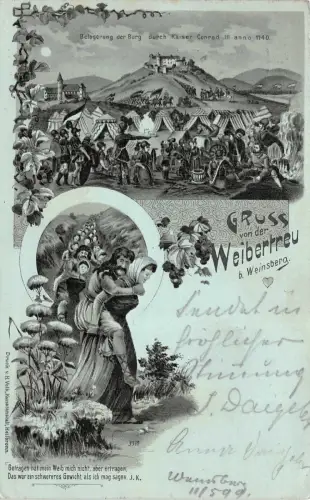 Belagerung der Burg durch Kaiser Conrad III anno 1140.
GRUSS
von der
Weibertreu
b. Weinsberg.
Sendet in
fröhlicher
Stimmung
Anna
Weinsberg
Getragen hat mein Weib mich nicht, aber ertragen,
Das war ein schwereres Gewicht als ich mag sagen. J. K.